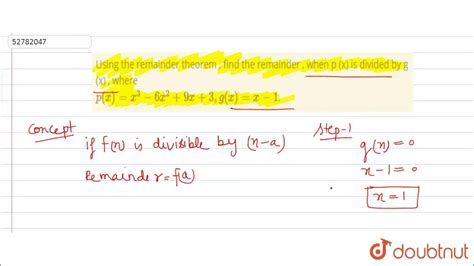 52782047
Using the remainder theorem , find the remainder , when p (x) is divided by g
(x) , where
p(x) = x³ − 6x² + 9x + 3, g(x) = x − 1.
Concept
if f(n) is divisible by (n-a)
Remainder = f(a)
Step-1
g(n) = 0
n-1 = 0
n = 1
doubtnut